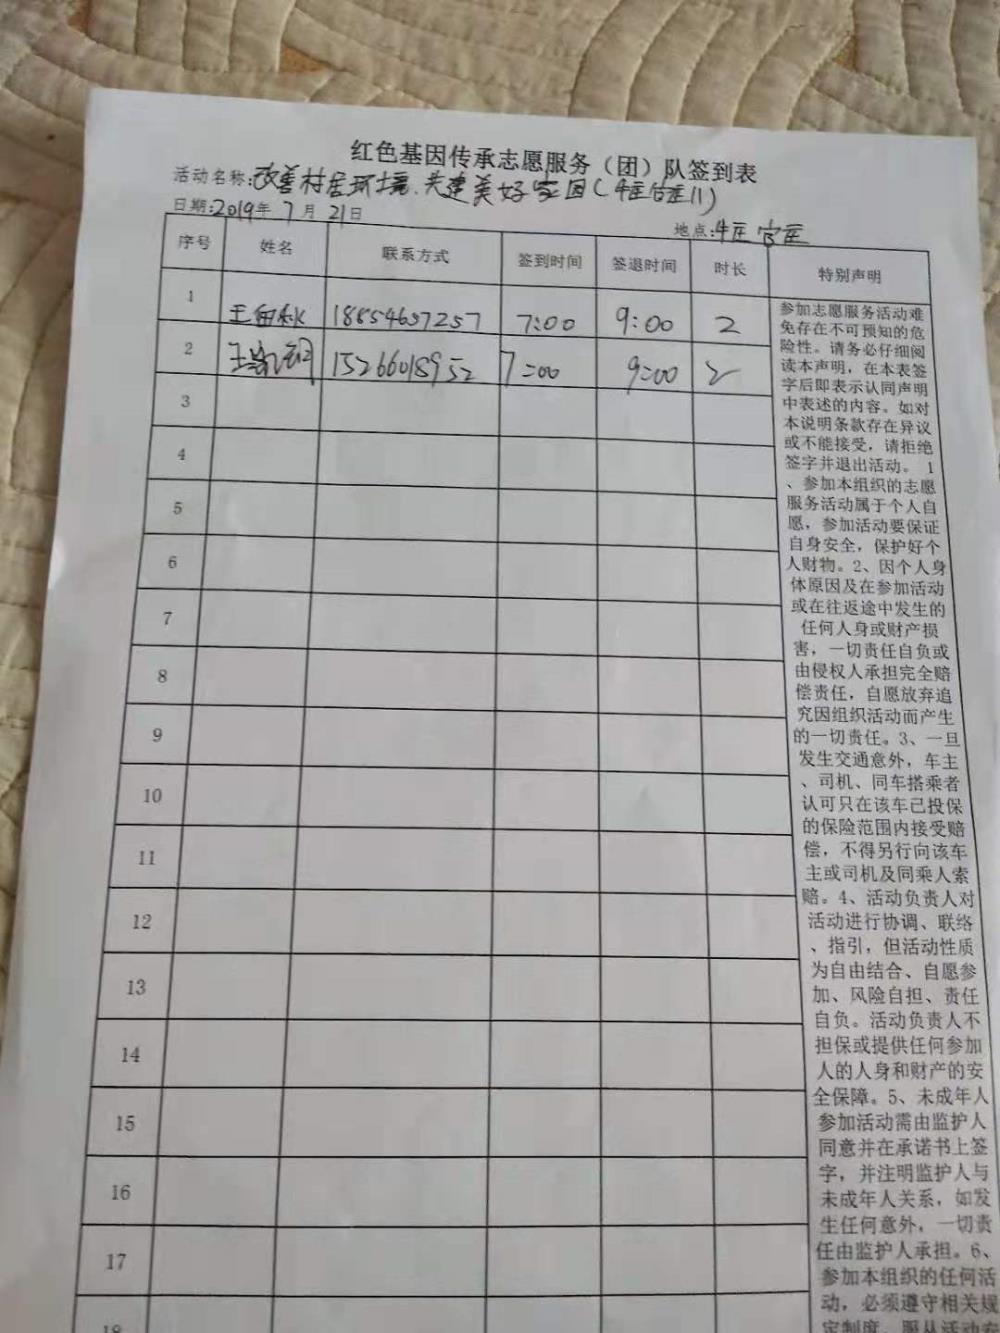 红色基因传承志愿服务（团）队签到表
活动名称:改善村居环境.共建美好家园(牛庄官庄11)
日期:2019年 7月 21日
地点:牛庄官庄
序号 姓名 联系方式 签到时间 签退时间 时长 特别声明
1 18854657257 7:00 9:00 2
2 15266018952 7:00 9:00 2
3
4
5
6
7
8
9
10
11
12
13
14
15
16
17
18
参加志愿服务活动难
免存在不可预知的危
险性。请务必仔细阅
读本声明，在本表签
字后即表示认同声明
中表述的内容。如对
本说明条款存在异议
或不能接受，请拒绝
签字并退出活动。 1
、参加本组织的志愿
服务活动属于个人自
愿，参加活动要保证
自身安全，保护好个
人财物。2、因个人身
体原因及在参加活动
或在往返途中发生的
任何人身或财产损
害，一切责任自负或
由侵权人承担完全赔
偿责任，自愿放弃追
究因组织活动而产生
的一切责任。3、一旦
发生交通意外，车主
、司机、同车搭乘者
认可只在该车已投保
的保险范围内接受赔
偿，不得另行向该车
主或司机及同乘人索
赔。4、活动负责人对
活动进行协调、联络
、指引，但活动性质
为自由结合、自愿参
加、风险自担、责任
自负。活动负责人不
担保或提供任何参加
人的人身和财产的安
全保障。5、未成年人
参加活动需由监护人
同意并在承诺书上签
字，并注明监护人与
未成年人关系，如发
生任何意外，一切责
任由监护人承担。6、
参加本组织的任何活
动，必须遵守相关规
定制度，服从活动安